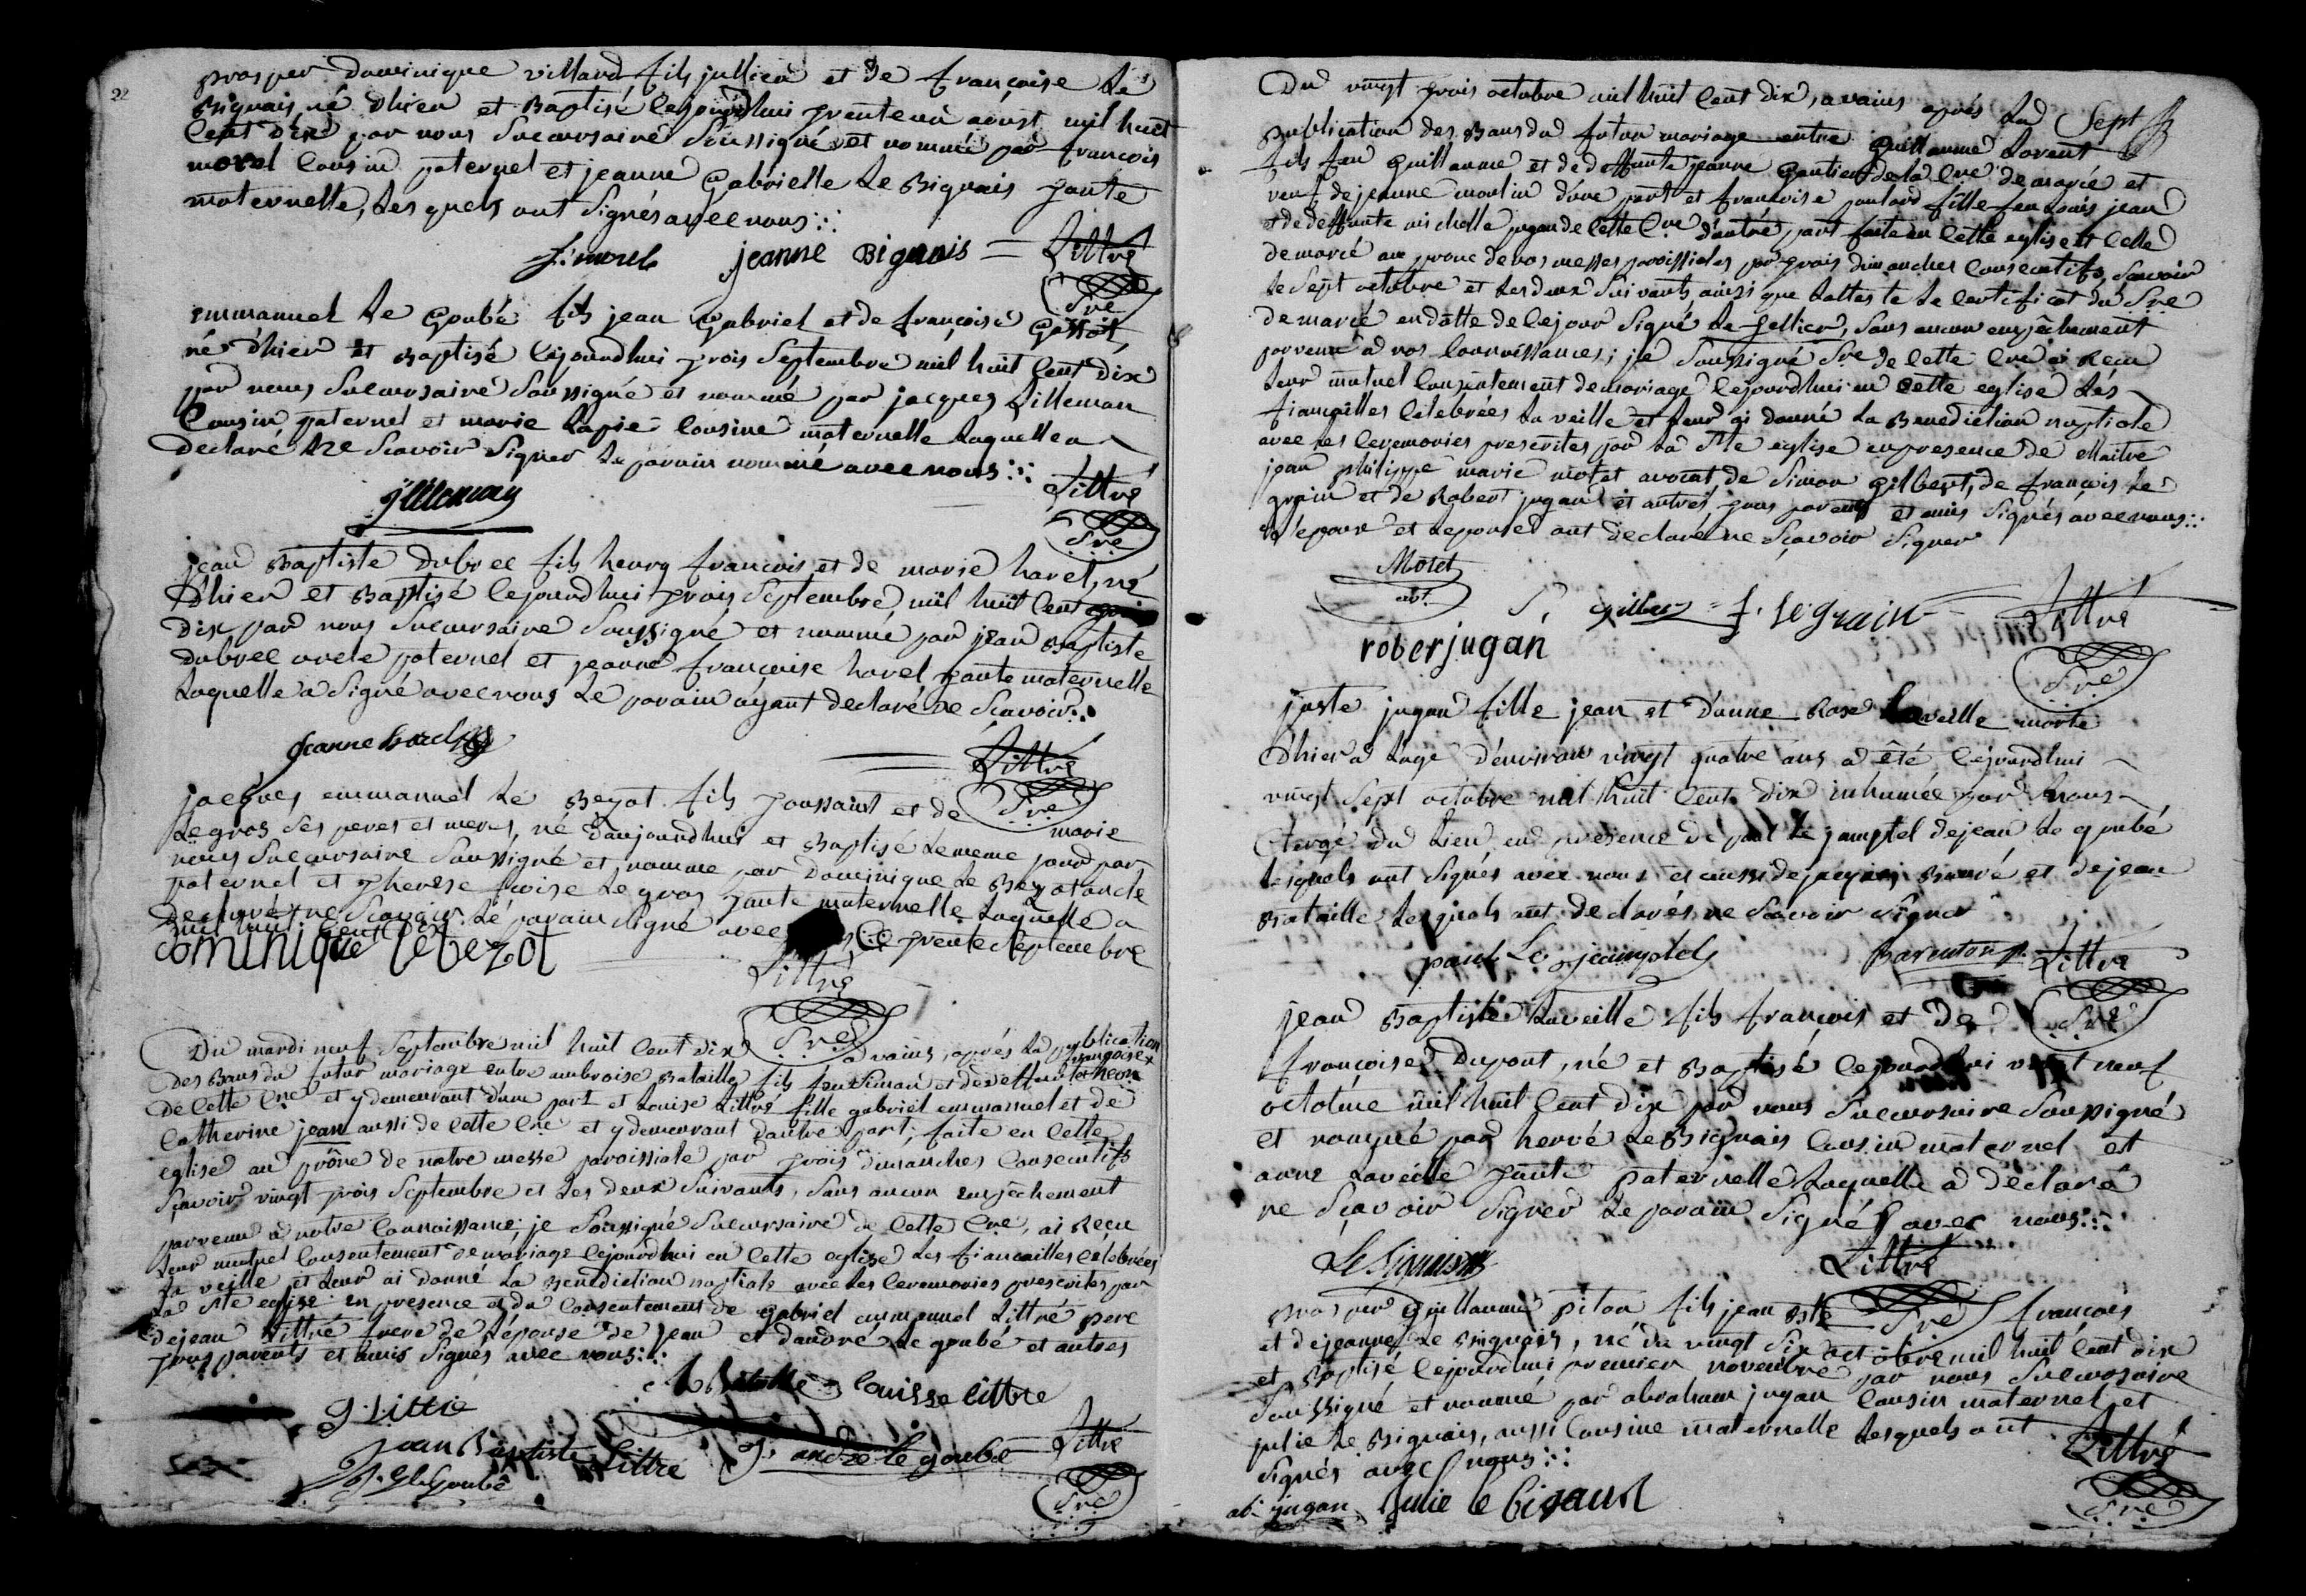 22
prosper Dominique villard fils jullien et de françoise Le
Biguais né d'hier et Baptisé Cejourdhui trente un aoust mil huit
Cent dix par nous Sucursaire Soussigné et nommé par françois
morel Cousin paternel et jeanne Gabrielle Le Biguais tante
maternelle, Lesquels ont Signés avec nous
f. morel jeanne Biguais Littré
Sre
emmanuel Le Goubé fils jean Gabriel et de françoise
né d'hier et Baptisé Cejourdhui trois Septembre mil huit Cent dix
par nous Sucursaire Soussigné et nommé par jacques Lilleman
Cousin paternel et marie Lapie Cousine maternelle Laquelle a
declaré Ne Scavoir Signer Le parain nommé avec nous
Littré
Sre
jean Baptiste Dubree fils henry françois et de marie havel, né
D'hier et Baptisé Cejourdhui trois Septembre mil huit Cent
dix par nous Sucursaire Soussigné et nommé par jean Baptiste
Dubree oncle paternel et jeanne françoise havel tante maternelle
Laquelle a Signé avec nous Le parain ayant declaré ne Scavoir
jeanne havel
Littré
Sre
jacques emmanuel Le Bezot fils toussaint et de marie
Le gros Ses peres et meres, né d'aujourdhui et Baptisé Le meme jour par
nous Sucursaire Soussigné et nommé par Dominique Le Bezot oncle
paternel et therese fcoise Le gros tante maternelle Laquelle a
declaré ne Scavoir Le parain signé avec Ce trente Septembre
mil huit Cent Dix
Dominique lebezot
Littré
Sre
Du mardi neuf Septembre mil huit Cent dix avains, après La publication
Des Bans du futur mariage entre ambroise Bataille fils feu Simon et de deffunte françoise
De Cette Cne et y demeurant d'une part et Louise Littré fille gabriel emmanuel et de
Catherine jean aussi de Cette Cne et y demeurant d'autre part; faite en Cette
eglise au prône de notre messe paroissiale par trois dimanches Consecutifs
Sçavoir vingt trois Septembre et Les deux Suivants, Sans aucun empêchement
parvenu à notre Connoissance; je Soussigné Sucursaire de Cette Cne, ai Reçu
Leur mutuel Consentement de mariage Cejourdhui en Cette eglise Les fiancailles Celebrées
La veille et Leur ai donné La Benediction nuptiale avec Les Ceremonies prescrites par
La Ste eglise en presence et du Consentement de Gabriel emmanuel Littré pere
de jean Littré frere de L'épouse de jean et d'andré Le goubé et autres
tous parents et amis Signés avec nous
A Bataille Louisse Littre
g Littre
jean Baptiste Littré andre le goubé Littré
Le Goubé
Sre
Du vingt trois octobre mil huit Cent dix, avains après La Sept
publication des Bans du futur mariage entre Guillaume Lorent
fils feu Guillaume et de deffunte jeanne Gautier de la Cne de marcé et
veuf de jeanne moulin d'une part et françoise paulard fille feu Louis jean
et de deffunte michelle jugan de Cette Cne d'autre part faite en Cette eglise et Celle
de marcé au prone de nos messes paroissiales par trois dimanches Consecutifs, Scavoir
Le Sept octobre et Les deux Suivants ainsi que L'atteste Le Certificat du Sre
de marcé en datte de Cejour Signé Le tellier, Sans aucun empêchement
parvenu à nos Connoissances; je Soussigné Sre de Cette Cne ai Reçu
Leur mutuel Consentement de mariage Cejourdhui en Cette eglise Les
fiançailles Célebrées La veille et Leur ai donné La Benediction nuptiale
avec Les Ceremonies prescrites par La Ste eglise en presence de Maitre
jean philippe marie motet avocat de Simon gilbert, de françois Le
grain et de Robert jugan et autres tous parents et amis Signés avec nous
L'epoux et Lepouse ont declaré ne Sçavoir Signer
Motet
avt.
S. gilbert f. legrain Littré
roberjugan
Sre
juste jugan fille jean et d'anne Rose Laveille morte
d'hier à L'age d'environ vingt quatre ans a été Cejourdhui
vingt Sept octobre mil huit Cent dix inhumée par nous
Clergé du Lieu en presence de paul Le jamptel de jean Le goubé
Lesquels ont Signés avec nous et aussi de jacques et de jean
Bataille Lesquels ont declarés ne Scavoir Signer
paul Le jamptel Barenton p. Littré
Sre
jean Baptiste Laveille fils françois et de
françoise Dupont, né et Baptisé Cejourdhui vingt neuf
octobre mil huit Cent dix par nous Sucursaire Soussigné
et nommé par hervé Le Biguais Cousin maternel et
anne Laveille tante paternelle Laquelle a declaré
ne Sçavoir Signer Le parain Signé avec nous
Le Biguais Littré
Sre
prosper Guillaume piton fils jean Bte françois
et de jeanne Le Biguais, né du vingt Six octobre mil huit Cent dix
et Baptisé Cejourdhui premier novembre par nous Sucursaire
Soussigné et nommé par abraham jugan Cousin maternel et
julie Le Biguais, aussi Cousine maternelle Lesquels ont
Signés avec nous
ab. jugan Julie le bigaux Littré
Sre